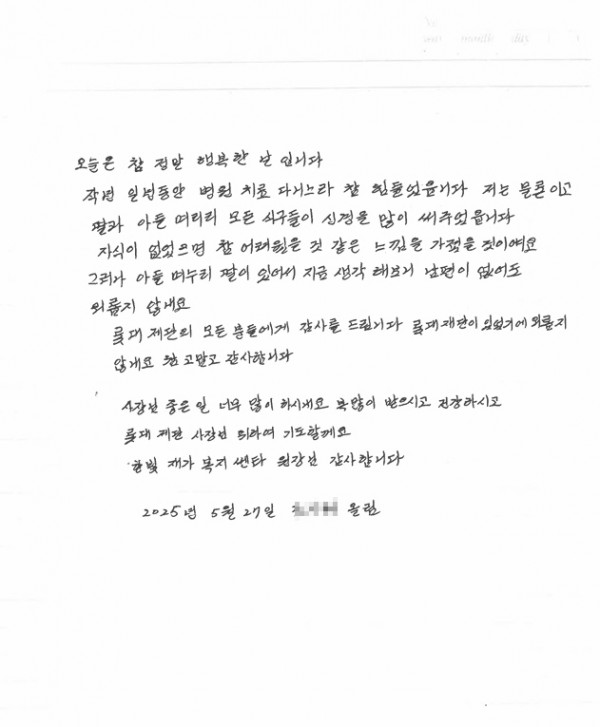 오늘은 참 정말 행복한 날 입니다
작년 일년동안 병원 치료 다니느라 참 힘들었읍니다 저는 물론이고
딸과 아들 며리리 모든 식구들이 신경을 많이 써주었읍니다
자식이 없었으면 참 어려웠을 것 같은 느낌을 가졌을 것이예요
그러나 아들 며누리 딸이 있어서 지금 생각 해보니 남편이 없어도
외롭지 않내요
롯데 재단의 모든 분들에게 감사를 드립니다 롯데재단이 있었기에 외롭지
않내요 고맙고 감사합니다
사장님 좋은 일 너무 많이 하시내요 복많이 받으시고 건강하시고
롯데 재단 사장님 위하여 기도할께요
한빛 재가 복지 쎈타 원장님 감사합니다
2025년 5월 27일 올림